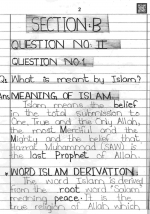 2
SECTION-B
QUESTION NO: II
QUESTION NO:1
Q: What is meant by Islam?
Ans: MEANING OF ISLAM:
Islam means the belief
in the total submission to
One True and the Only Allah,
the most Merciful and the
Mighty and the belief that
Hazrat Muhammad (SAW) is
the last Prophet of Allah.
WORD ISLAM DERIVATION:
The word Islam is derived
from the root word "Salam"
meaning peace. It is the
true religion of Allah which